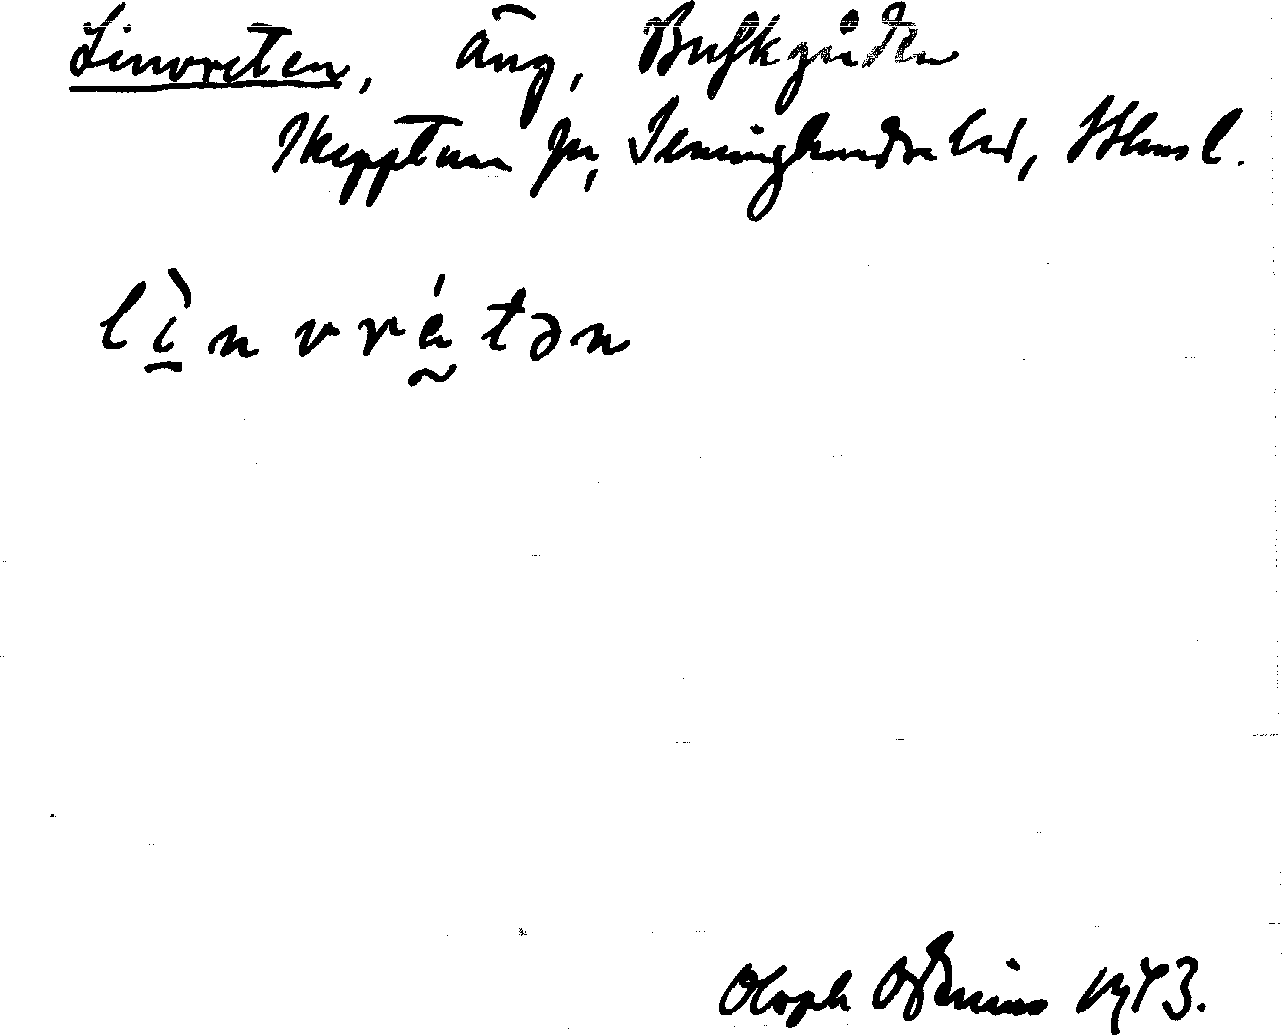 Linvreten, äng,
Skepptuna sn, Seminghundra hd, Stlms l.
lìnvrétən
Oloph Odenius 1943.